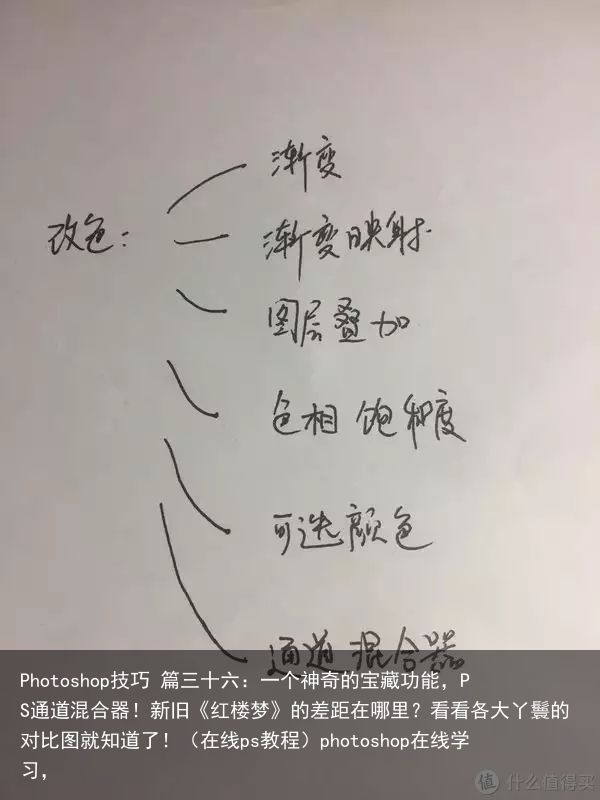 渐变
改色:
渐变映射
图层叠加
色相 饱和度
可选颜色
通道混合器
Photoshop技巧 篇三十六：一个神奇的宝藏功能，P
S通道混合器！新旧《红楼梦》的差距在哪里？看看各大丫鬟的
对比图就知道了！（在线ps教程）photoshop在线学
习，
值 什么值得买